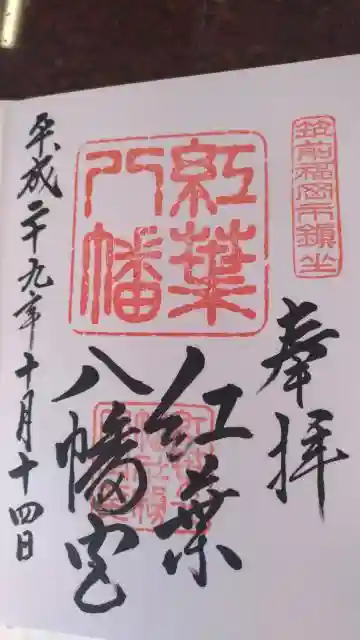 筑前福岡市鎮坐
奉拝
紅葉
八幡
紅葉
八幡宮
平成二十九年十月十四日